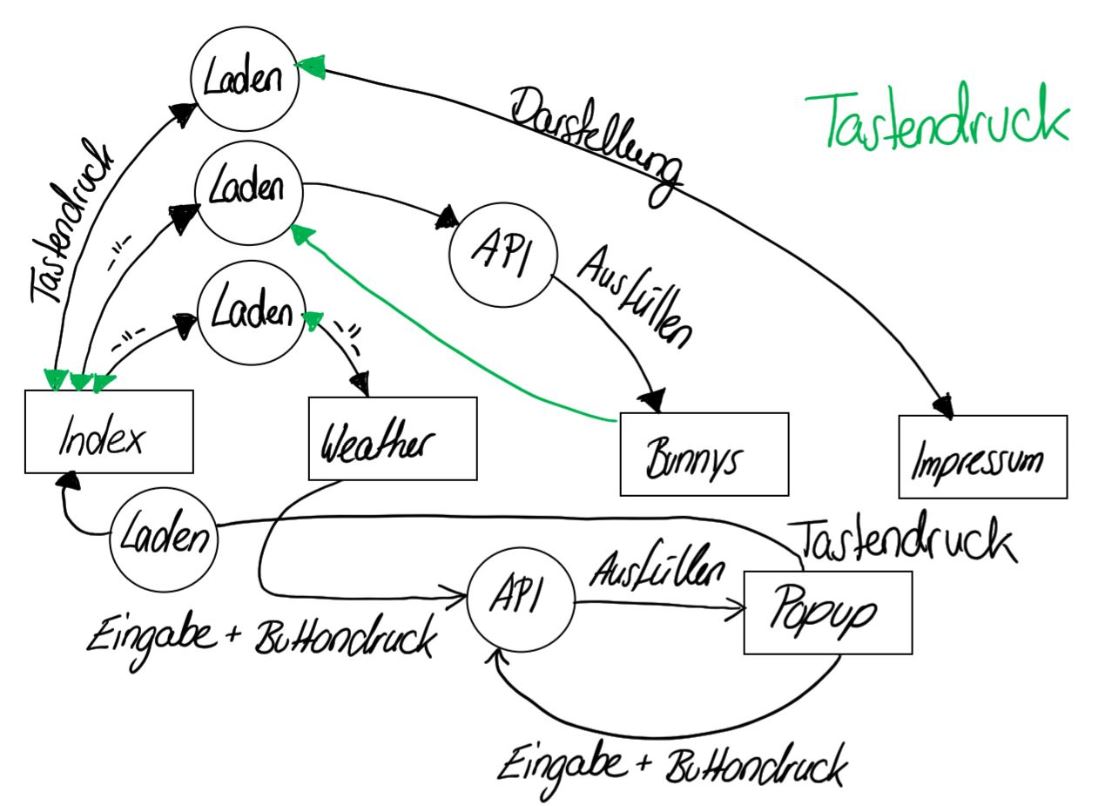 Laden
Darstellung
Tastendruck
Tastendruck
Laden
-"-
API
Ausfüllen
Laden
-"-
-"-
Index
Weather
Bunnys
Impressum
Laden
Tastendruck
API
Ausfüllen
Popup
Eingabe + Buttondruck
Eingabe + Buttondruck